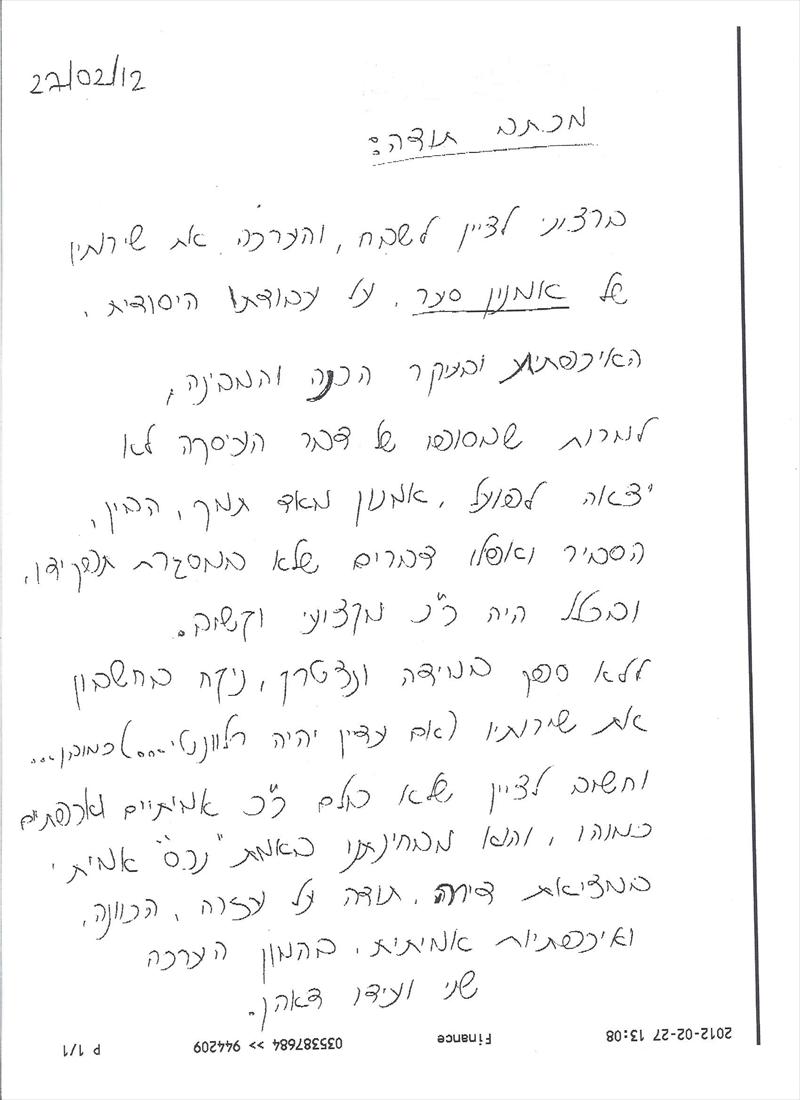 27/02/12
מכתב תודה:
ברצוני לציין לשבח, והערכה את שירותיו
של אמנון סער, על עבודתו היסודית,
האיכפתית ובעיקר הכנה והמבינה,
למרות שבסופו של דבר העיסקה לא
יצאה לפועל, אמנון מאד תמך, הבין,
הסביר ואפילו דברים שלא במסגרת תפקידו,
ובכלל היה כ"כ מקצועי וקשוב.
ללא ספק במידה ונצטרך, ניקח בחשבון
את שירותיו (אם עדיין יהיה רלוונטי...) כמובן...
וחשוב לציין שלא כולם כ"כ אמיתיים ואכפתיים
כמוהו, והוא מבחינתנו באמת "נכס" אמיתי
במציאת דירה. תודה על עזרה, הכוונה,
ואיכפתיות אמיתית, בהמון הערכה
שני ועידו דאהן.
2012-02-27 13:08 Finance 035387684 >> 944209 P 1/1